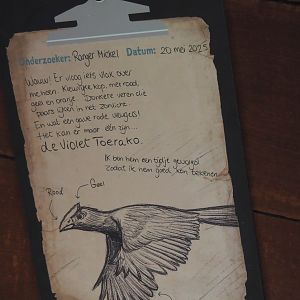 Onderzoeker: Ranger Mickel Datum: 20 mei 2025
Wauw! Er vloog iets vlak over
me heen. Kleurrijke kop, met rood,
geel en oranje. Donkere veren die
paars gloeien in het zonlicht.
En wat een gave rode vleugels!
Het kan er maar één zijn...
de Violet Toerako.
Ik ben hem een tijdje gevolgd
zodat ik hem goed kon tekenen.
Rood
Geel